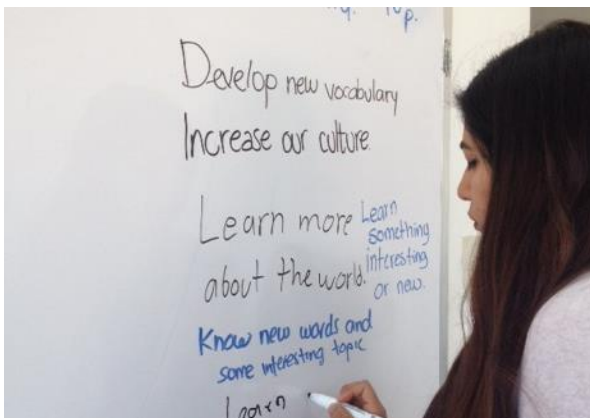 Develop new vocabulary
Increase our culture.
Learn more
about the world.
Learn
something
interesting
or new.
Know new words and
some interesting topic
Learn